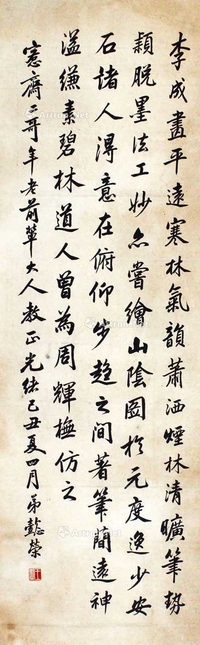 李成畫平遠寒林氣韻蕭洒煙林清曠筆勢
穎脫墨法工妙亦嘗繪山陰圖於元度逸少安
石諸人得意在俯仰步趨之間著筆簡遠神
溢縑素碧林道人曾為周輝橅仿之
憲齋二哥年老前輩大人教正光緒己丑夏四月弟懿榮